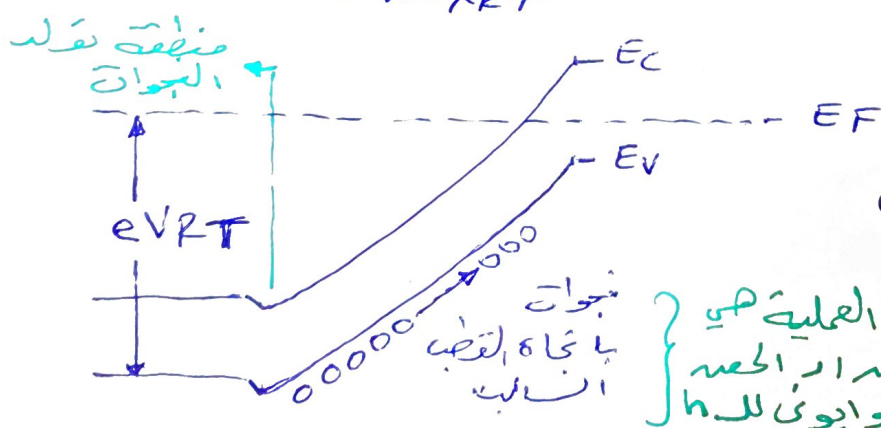 منطقة تولد
الفجوات
EC
EF
EV
eVRT
فجوات
باتجاه القطب
السالب
العملية هي